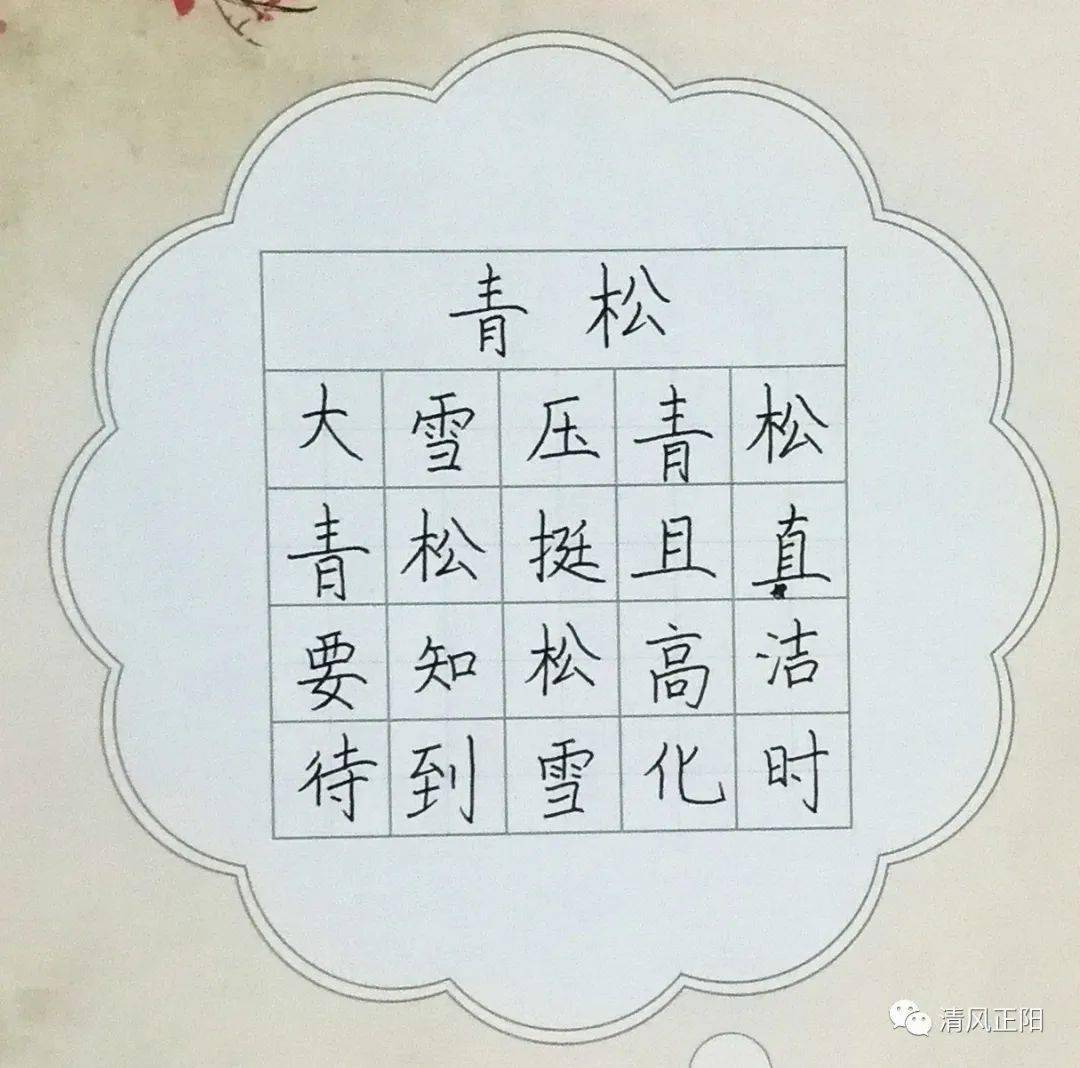 青松
大雪压青松
青松挺且直
要知松高洁
待到雪化时
清风正阳